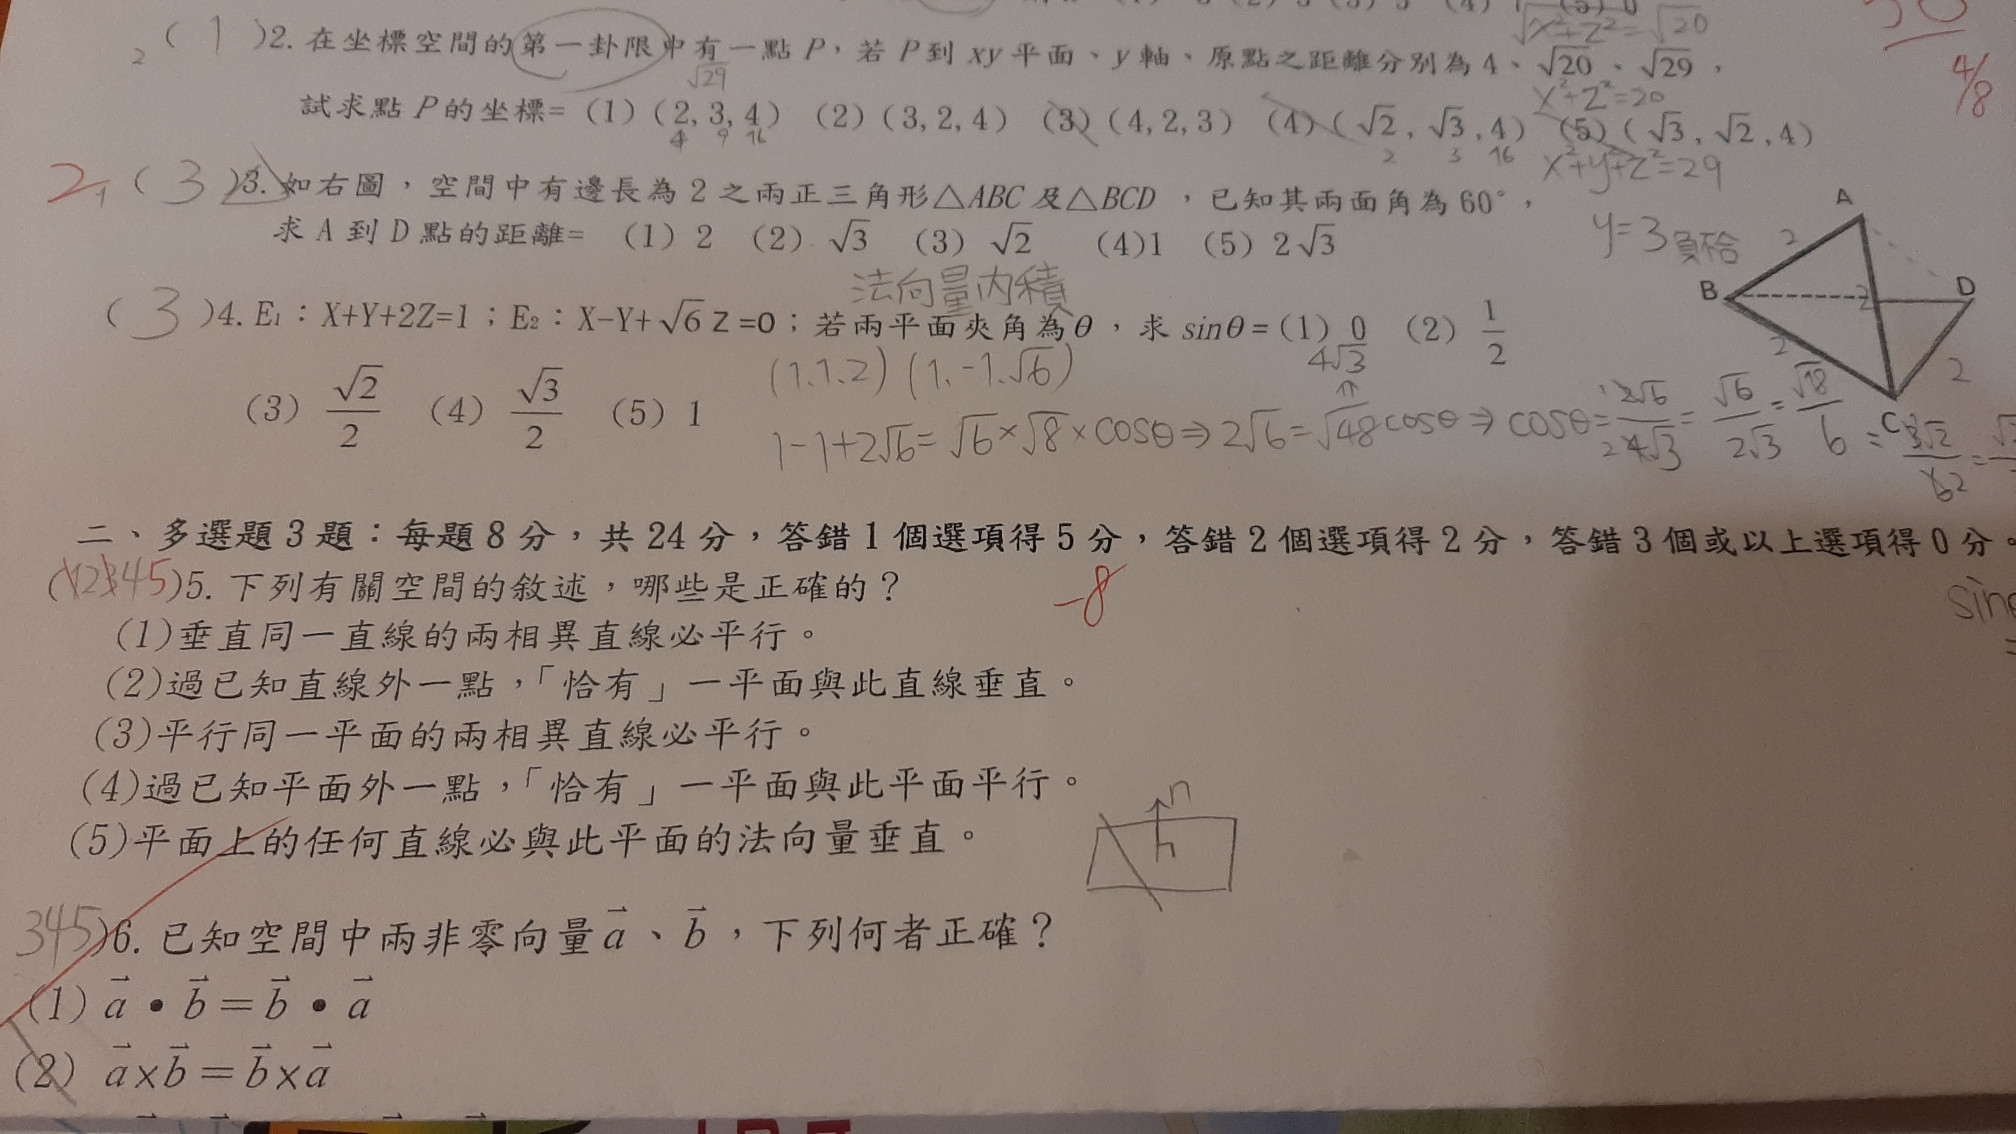 √x²+z²=√20
2 ( 1 )2. 在坐標空間的第一卦限中有一點 P，若 P 到 xy 平面、y 軸、原點之距離分別為 4、√20、√29，
√29
x²+z²=20
試求點 P 的坐標= (1) (2,3,4) (2) (3,2,4) (3) (4,2,3) (4) (√2,√3,4) (5) (√3,√2,4)
4 9 16 2 3 16
x²+y²+z²=29
4/8
( 3 )3. 如右圖，空間中有邊長為 2 之兩正三角形△ABC 及△BCD ，已知其兩面角為 60°，
求 A 到 D 點的距離= (1) 2 (2) √3 (3) √2 (4)1 (5) 2√3
y=3 負不合
A
B
D
C
2
2
2
2
法向量內積
( 3 )4. E₁：X+Y+2Z=1；E₂：X-Y+√6 Z =0；若兩平面夾角為θ，求 sinθ= (1) 0 (2) 1/2
(1.1.2) (1.-1.√6)
4√3
(3) √2/2 (4) √3/2 (5) 1
1-1+2√6=√6×√8×cosθ⇒2√6=√48cosθ⇒cosθ=2√6/4√3=√6/2√3=√18/6=3√2/6
二、多選題 3 題：每題 8 分，共 24 分，答錯 1 個選項得 5 分，答錯 2 個選項得 2 分，答錯 3 個或以上選項得 0 分。
(12345)5. 下列有關空間的敘述，哪些是正確的？
-8
(1)垂直同一直線的兩相異直線必平行。
(2)過已知直線外一點，「恰有」一平面與此直線垂直。
(3)平行同一平面的兩相異直線必平行。
(4)過已知平面外一點，「恰有」一平面與此平面平行。
(5)平面上的任何直線必與此平面的法向量垂直。
n
345)6. 已知空間中兩非零向量 a⃗、b⃗，下列何者正確？
(1) a⃗ • b⃗ = b⃗ • a⃗
(2) a⃗×b⃗ = b⃗×a⃗